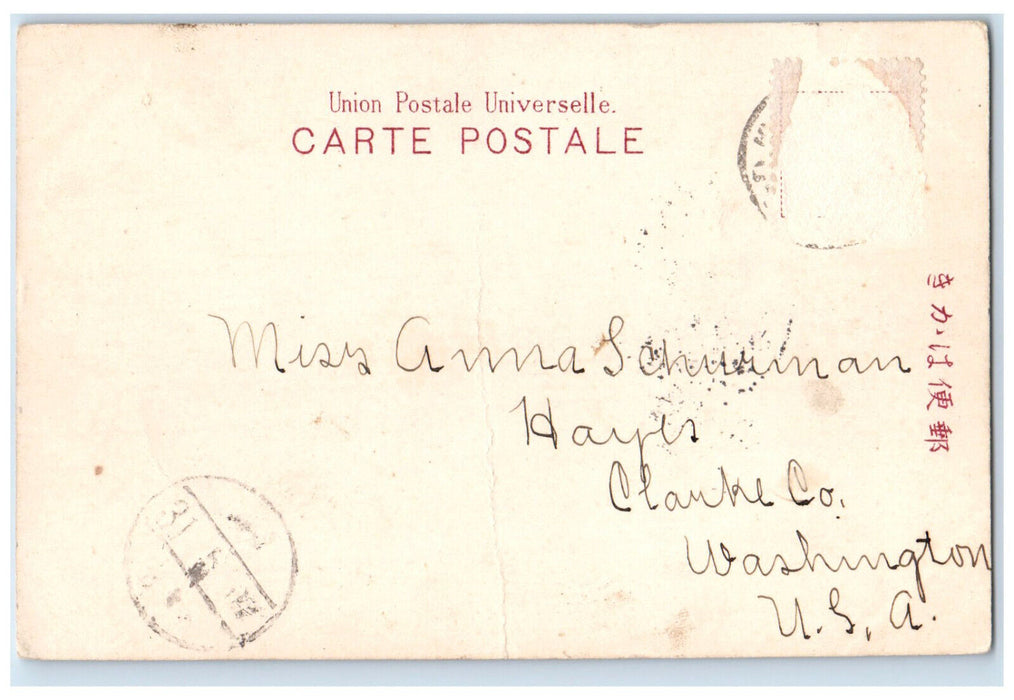 Union Postale Universelle.
CARTE POSTALE
きかゝは便郵
Miss Anna Schurman
Hayes
Clarke Co.
Washington
U.S.A.